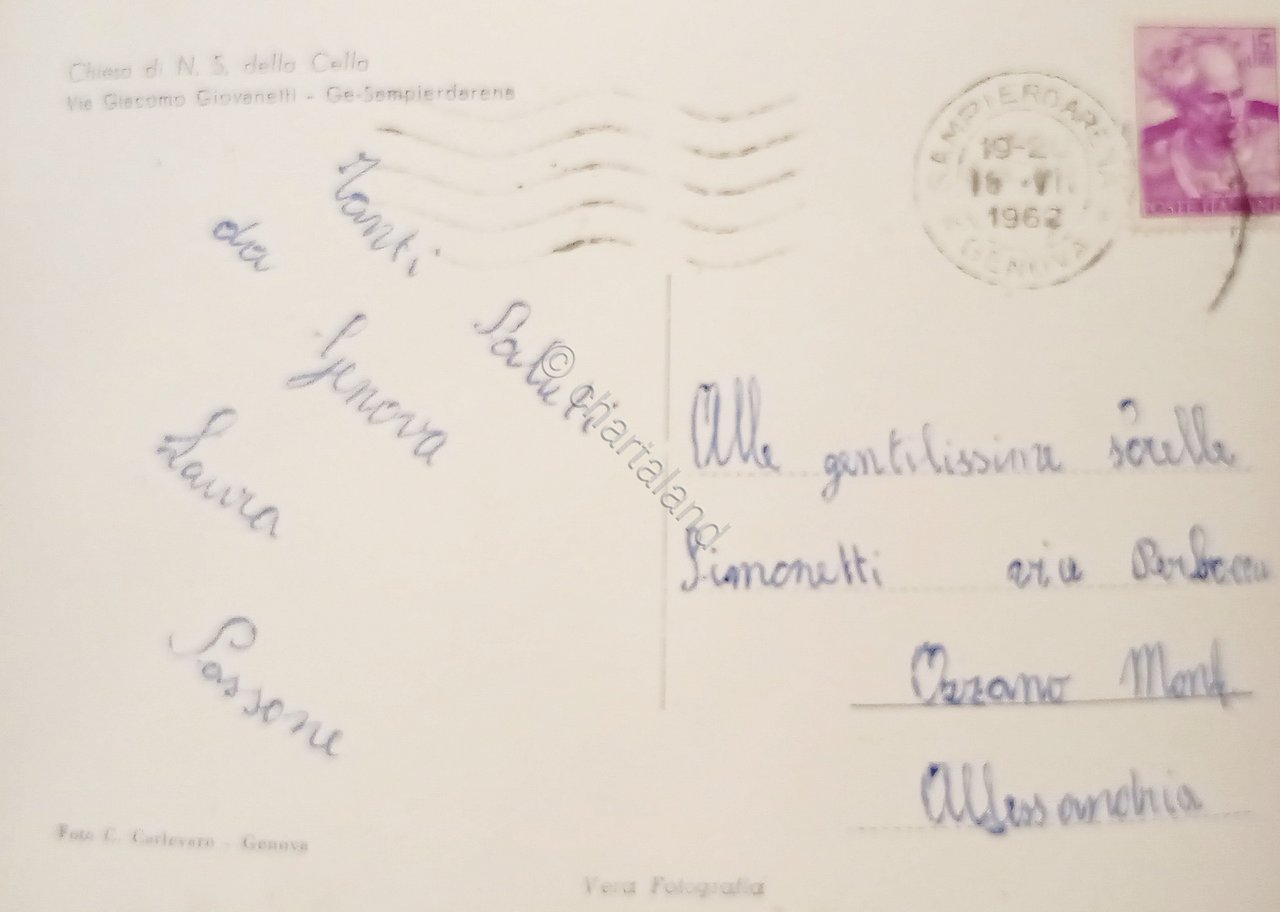 Chiesa di N. S. della Cella
Via Giacomo Giovanetti - Ge-Sampierdarena
Tanti Saluti
da Genova
Laura
Sassone
SAMPIERDARENA
1962
GENOVA
15
POSTE ITALIANE
Alle gentilissime sorelle
Simonetti via
Ozzano Monf
Allessandria
© Chartaland
Foto C. Carlevaro - Genova
Vera Fotografia